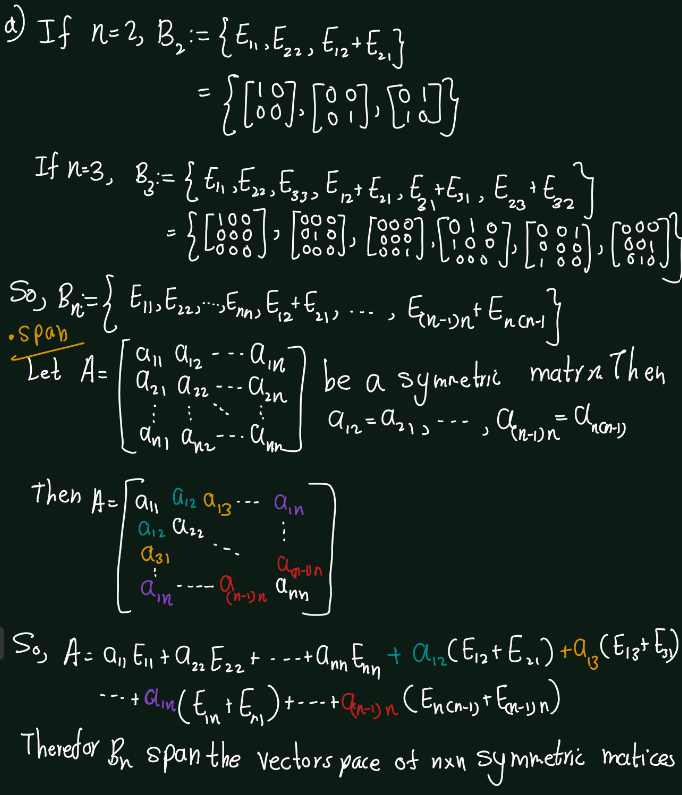 a) If n=2, B₂ := {E₁₁, E₂₂, E₁₂+E₂₁}
= {[1 0; 0 0], [0 0; 0 1], [0 1; 1 0]}
If n=3, B₃ := {E₁₁, E₂₂, E₃₃, E₁₂+E₂₁, E₃₁+E₃₁, E₂₃+E₃₂}
= {[1 0 0; 0 0 0; 0 0 0], [0 0 0; 0 1 0; 0 0 0], [0 0 0; 0 0 0; 0 0 1], [0 1 0; 1 0 0; 0 0 0], [0 0 1; 0 0 0; 1 0 0], [0 0 0; 0 0 1; 0 1 0]}
So, Bₙ := {E₁₁, E₂₂, ..., Eₙₙ, E₁₂+E₂₁, ..., E₍ₙ₋₁₎ₙ + Eₙ₍ₙ₋₁}
• span
Let A = [a₁₁ a₁₂ --- a₁ₙ; a₂₁ a₂₂ --- a₂ₙ; ⋮ ⋮ ⋱ ⋮; aₙ₁ aₙ₂ --- aₙₙ] be a symmetric matrx. Then
a₁₂ = a₂₁, ---, a₍ₙ₋₁₎ₙ = aₙ₍ₙ₋₁₎
Then A = [a₁₁ a₁₂ a₁₃ --- a₁ₙ; a₁₂ a₂₂ ⋮; a₃₁ ⋱ a₍ₙ₋₁₎ₙ; a₁ₙ ---- a₍ₙ₋₁₎ₙ aₙₙ]
So, A = a₁₁E₁₁ + a₂₂E₂₂ + ---- + aₙₙEₙₙ + a₁₂(E₁₂+E₂₁) + a₁₃(E₁₃+E₃₁)
---+ a₁ₙ(E₁ₙ+Eₙ₁) + --- + a₍ₙ₋₁₎ₙ(Eₙ₍ₙ₋₁₎ + E₍ₙ₋₁₎ₙ)
Therefor Bₙ span the vectorspace of nxn symmetric matices